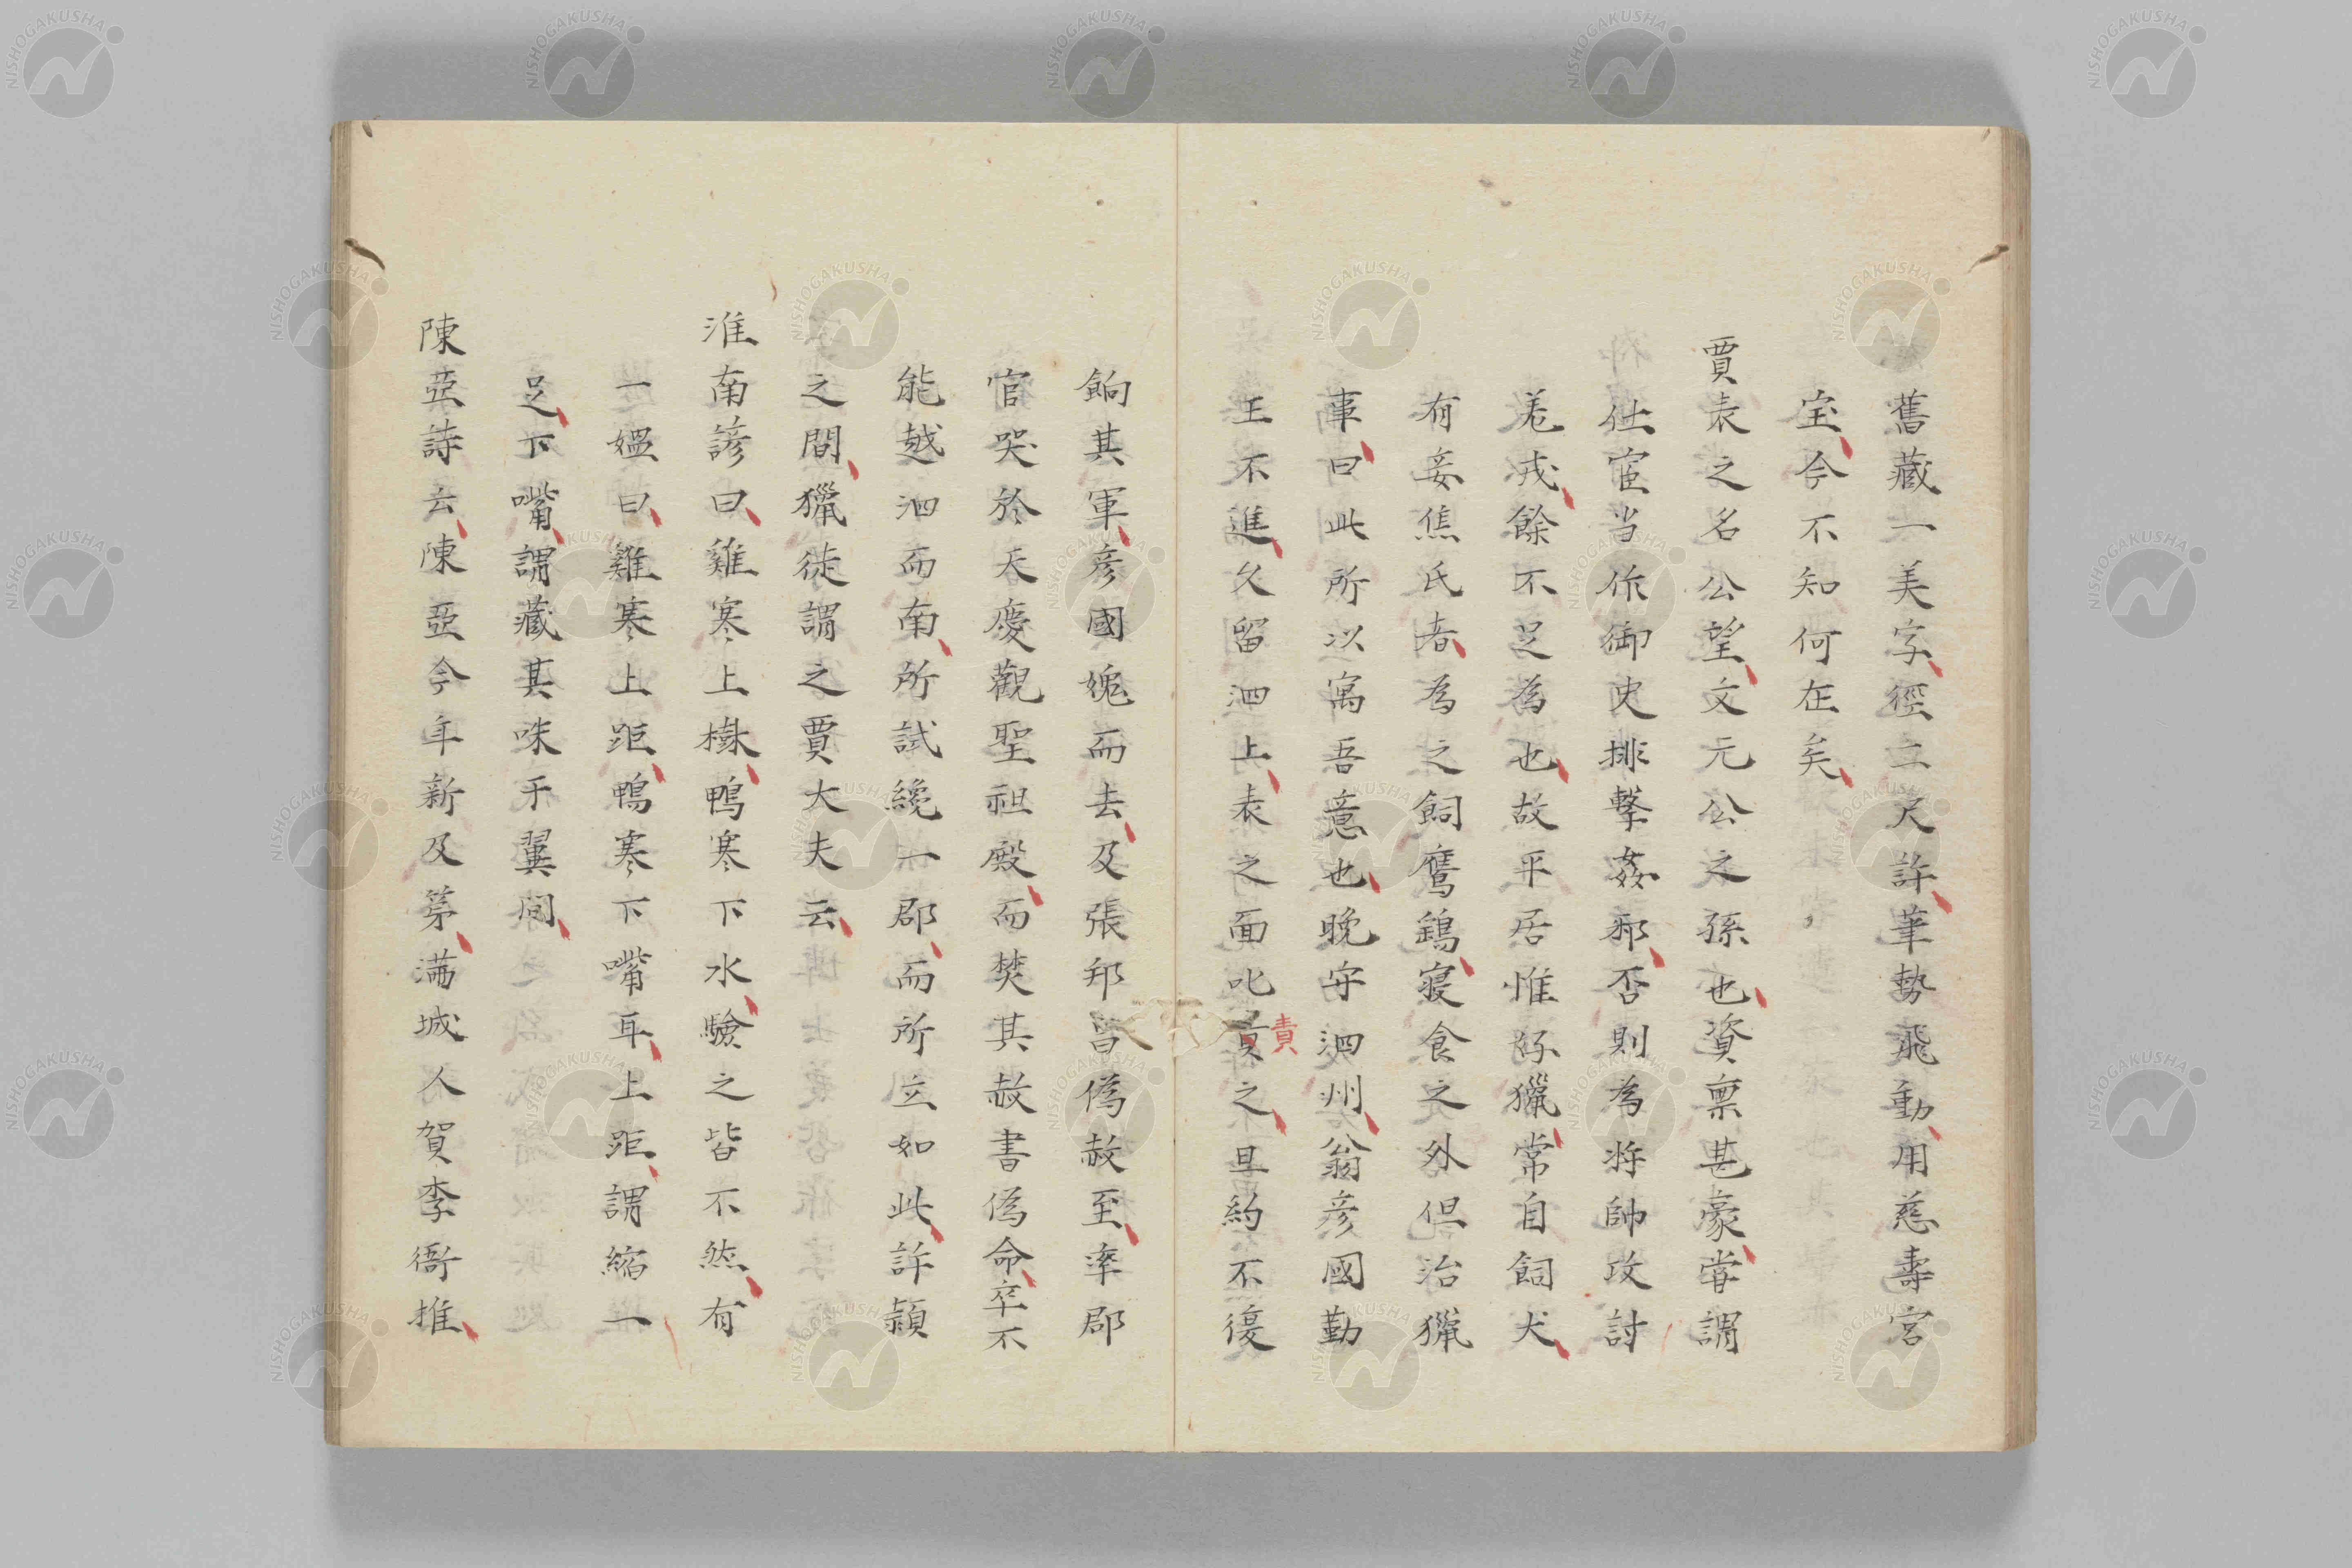 舊藏一美字徑二尺許筆勢飛動用慈壽宮
宝今不知何在矣
賈表之名公望文元公之孫也資禀甚豪甞謂
仕宦当作御史排擊姦邪否則為将帥攻討
羌戎餘不足為也故平居惟好獵常自飼犬
有妾焦氏者為之飼鷹鷂寝食之外但治獵
事曰此所以寓吾意也晚守泗州翁彦國勤
王不進久留泗上表之面叱責之且約不復
餉其軍彦國媿而去及張邦昌偽赦至率郡
官哭於天慶觀聖祖殿而焚其赦書偽命卒不
能越泗而南所試纔一郡而所立如此許頴
之間獵徒謂之賈大夫云
淮南諺曰雞寒上樹鴨寒下水驗之皆不然有
一媼曰雞寒上距鴨寒下嘴耳上距謂縮一
足下嘴謂藏其咮于翼間
陳亞詩云陳亞今年新及第滿城人賀李衙推
NISHOGAKUSHA